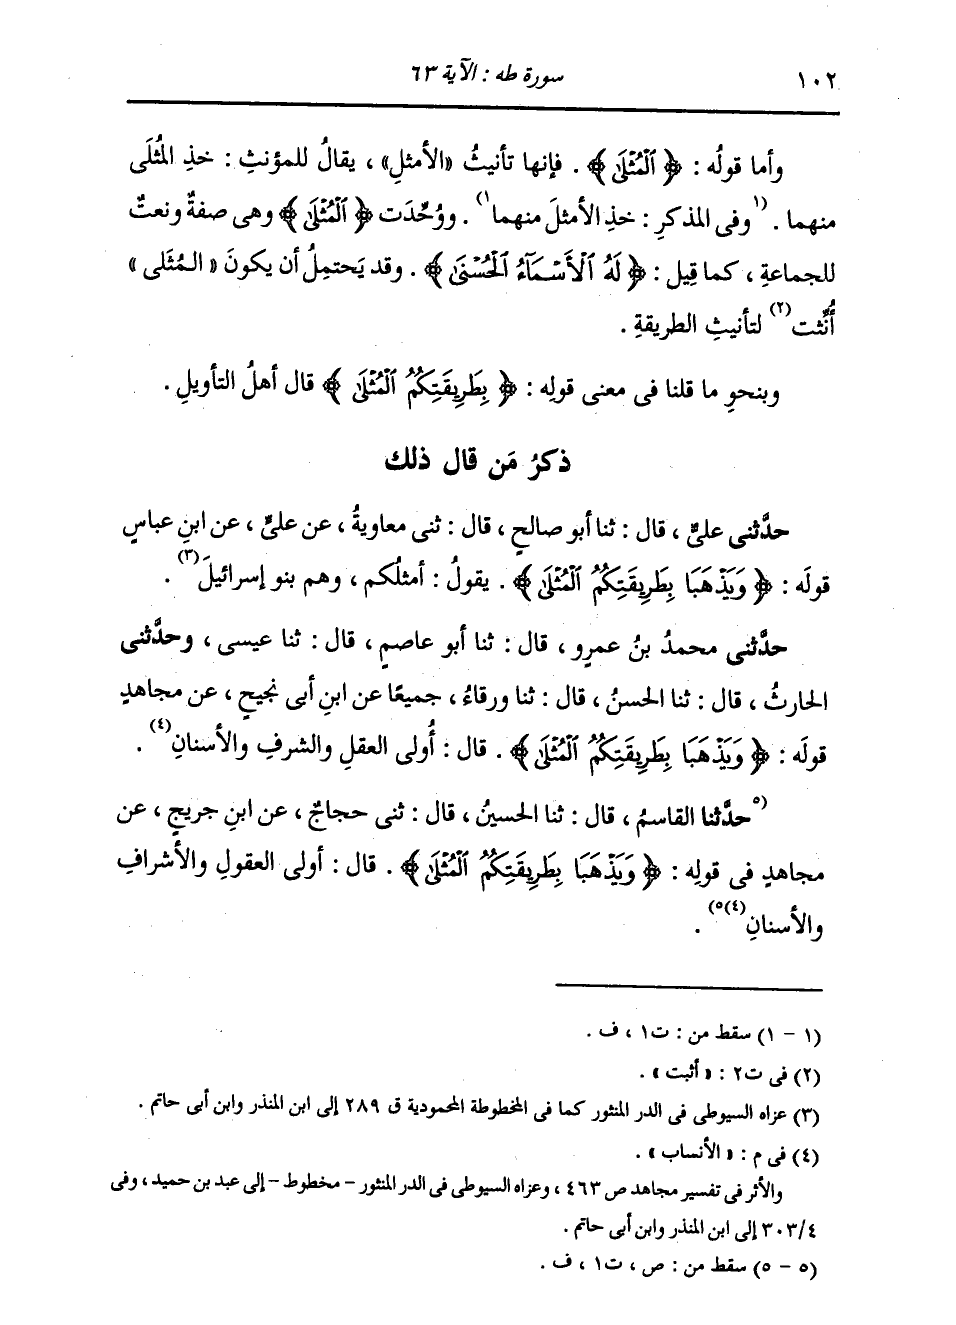 ١٠٢ سورة طه : الآية ٦٣
وأما قولُه : ﴿ ٱلْمُثْلَىٰ ﴾ . فإنها تأنيثُ «الأمثلِ» ، يقالُ للمؤنثِ : خذِ المُثلَى
منهما . (١وفى المذكرِ : خذِ الأمثلَ منهما١) . ووُحِّدَت ﴿ ٱلْمُثْلَىٰ ﴾ وهى صفةٌ ونعتٌ
للجماعةِ ، كما قيل : ﴿ لَهُ ٱلْأَسْمَآءُ ٱلْحُسْنَىٰ ﴾ . وقد يَحتمِلُ أن يكونَ « المُثَلى »
أُنِّثت(٢) لتأنيثِ الطريقةِ .
وبنحوِ ما قلنا فى معنى قولِه : ﴿ بِطَرِيقَتِكُمُ ٱلْمُثْلَىٰ ﴾ قال أهلُ التأويلِ .
ذكرُ مَن قال ذلك
حدَّثنى علىٌّ ، قال : ثنا أبو صالحٍ ، قال : ثنى معاويةُ ، عن علىٍّ ، عن ابنِ عباسٍ
قولَه : ﴿ وَيَذْهَبَا بِطَرِيقَتِكُمُ ٱلْمُثْلَىٰ ﴾ . يقولُ : أمثلُكم ، وهم بنو إسرائيلَ(٣) .
حدَّثنى محمدُ بنُ عمرٍو ، قال : ثنا أبو عاصمٍ ، قال : ثنا عيسى ، وحدَّثنى
الحارثُ ، قال : ثنا الحسنُ ، قال : ثنا ورقاءُ ، جميعًا عن ابنِ أبى نجيحٍ ، عن مجاهدٍ
قولَه : ﴿ وَيَذْهَبَا بِطَرِيقَتِكُمُ ٱلْمُثْلَىٰ ﴾ . قال : أُولى العقلِ والشرفِ والأسنانِ(٤) .
(٥حدَّثنا القاسمُ ، قال : ثنا الحسينُ ، قال : ثنى حجاجٌ ، عن ابنِ جريجٍ ، عن
مجاهدٍ فى قولِه : ﴿ وَيَذْهَبَا بِطَرِيقَتِكُمُ ٱلْمُثْلَىٰ ﴾ . قال : أولى العقولِ والأشرافِ
والأسنانِ(٤)٥) .
(١ - ١) سقط من : ت١ ، ف .
(٢) فى ت٢ : « أثبت » .
(٣) عزاه السيوطى فى الدر المنثور كما فى المخطوطة المحمودية ق ٢٨٩ إلى ابن المنذر وابن أبى حاتم .
(٤) فى م : « الأنساب » .
والأثر فى تفسير مجاهد ص ٤٦٣ ، وعزاه السيوطى فى الدر المنثور - مخطوط - إلى عبد بن حميد ، وفى
٣٠٣/٤ إلى ابن المنذر وابن أبى حاتم .
(٥ - ٥) سقط من : ص ، ت١ ، ف .